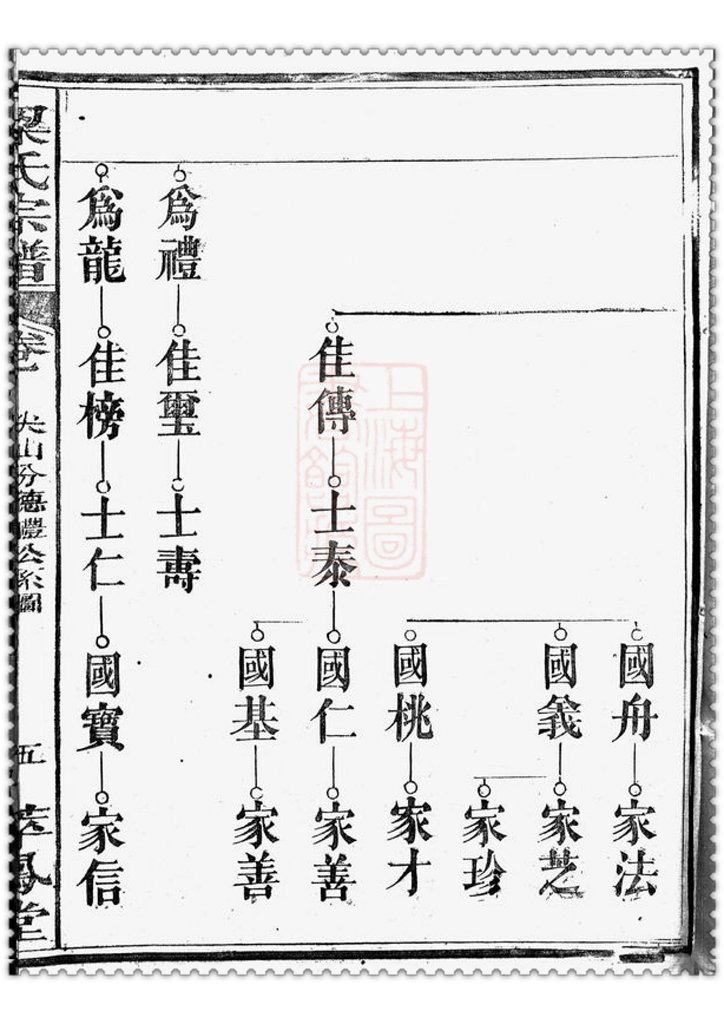 國舟 家法
國義 家芝
家珍
國桃 家才
佳傳 士泰 國仁 家善
國基 家善
爲禮 佳璽 士壽
爲龍 佳榜 士仁 國寶 家信
氏宗譜 卷
尖山分德禮公系圖
五
鳳堂
上海圖